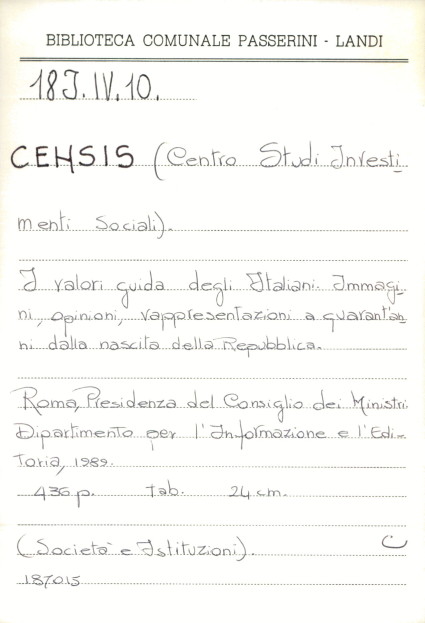 BIBLIOTECA COMUNALE PASSERINI - LANDI
18J.IV.10.
CENSIS (Centro Studi Investi-
menti Sociali).
I valori guida degli Italiani. Immagi-
ni, opinioni, rappresentazioni a quarant'an-
ni dalla nascita della Repubblica.
Roma, Presidenza del Consiglio dei Ministri.
Dipartimento per l'Informazione e l'Edi-
toria, 1989.
436 p. tab. 24 cm.
(Società e Istituzioni).
187015